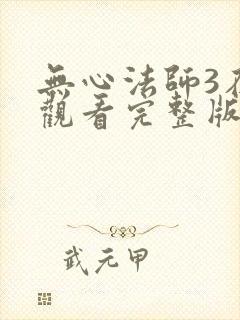 無心法師3在
觀看完整版
武元甲